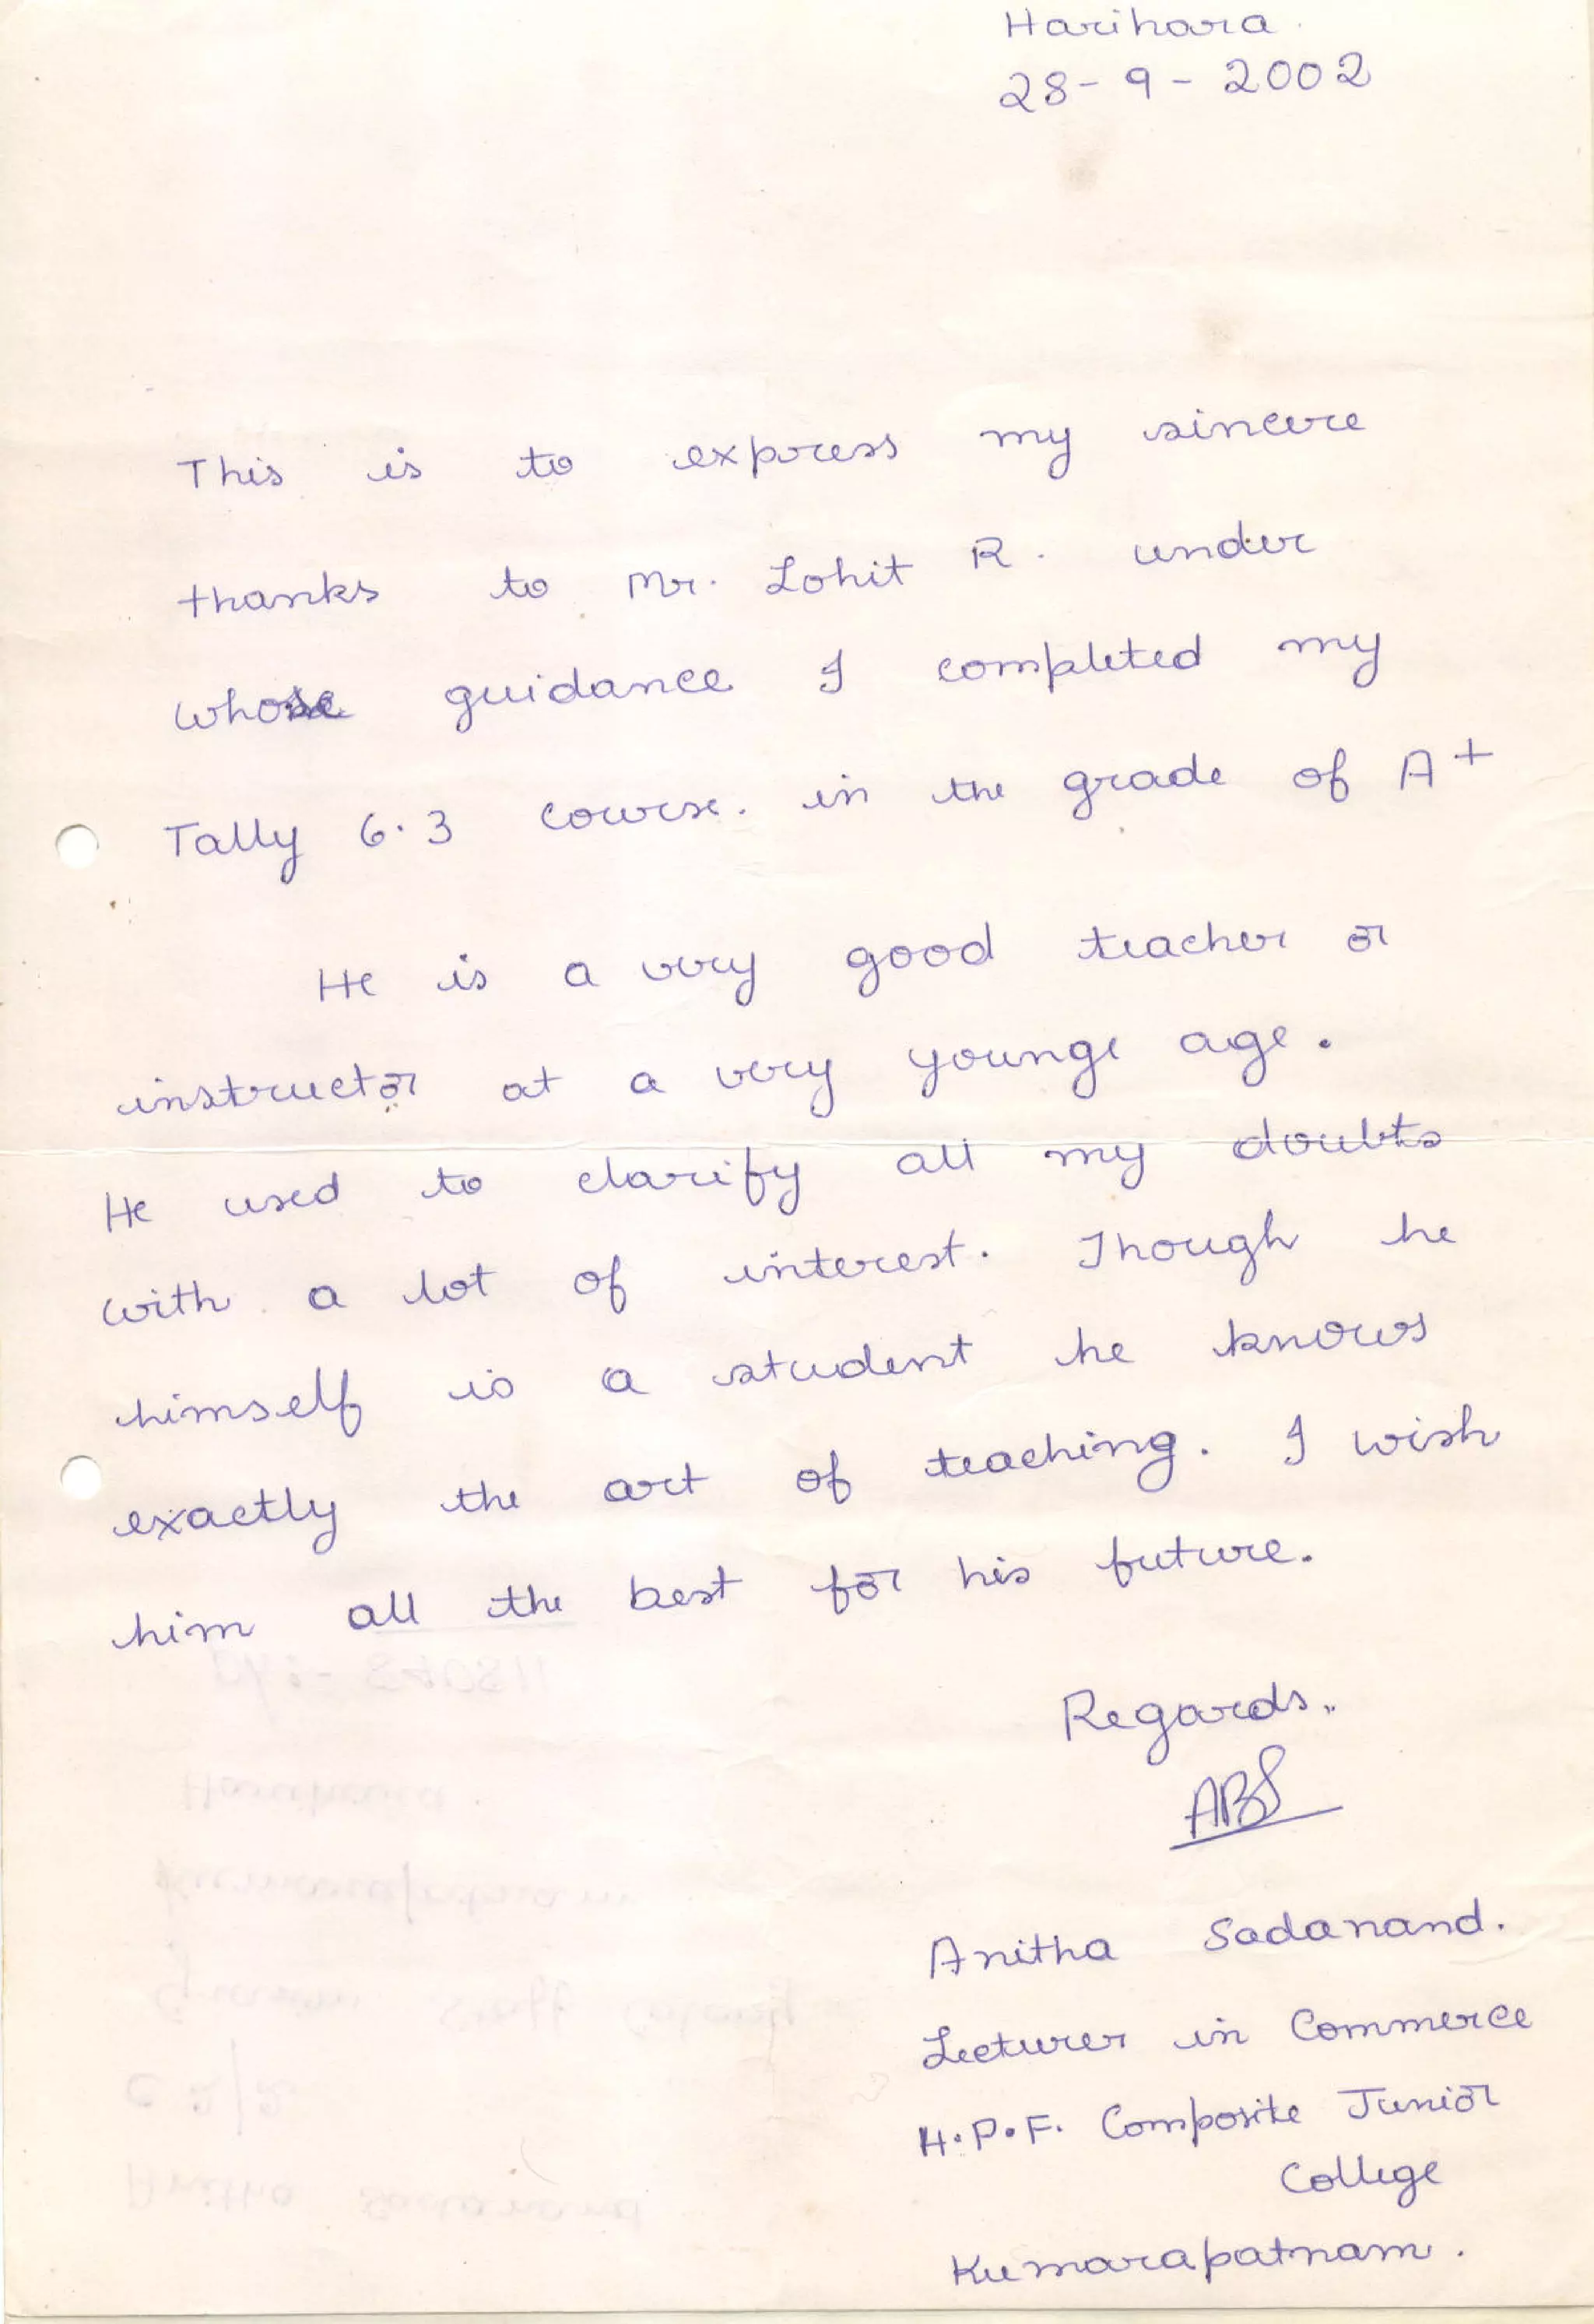 Harihara.
28-9-2002
This is to express my sincere
thanks to Mr. Lohit R. under
whose guidance I completed my
Tally 6.3 course. in the grade of A+
He is a very good teacher or
instructor at a very younge age.
He used to clarify all my doubts
with a lot of interest. Though he
himself is a student he knows
exactly the art of teaching. I wish
him all the best for his future.
Regards,,
ABS
Anitha Sadanand.
Lecturer in Commerce
H.P.F. Composite Junior
College
Kumarapatnam.